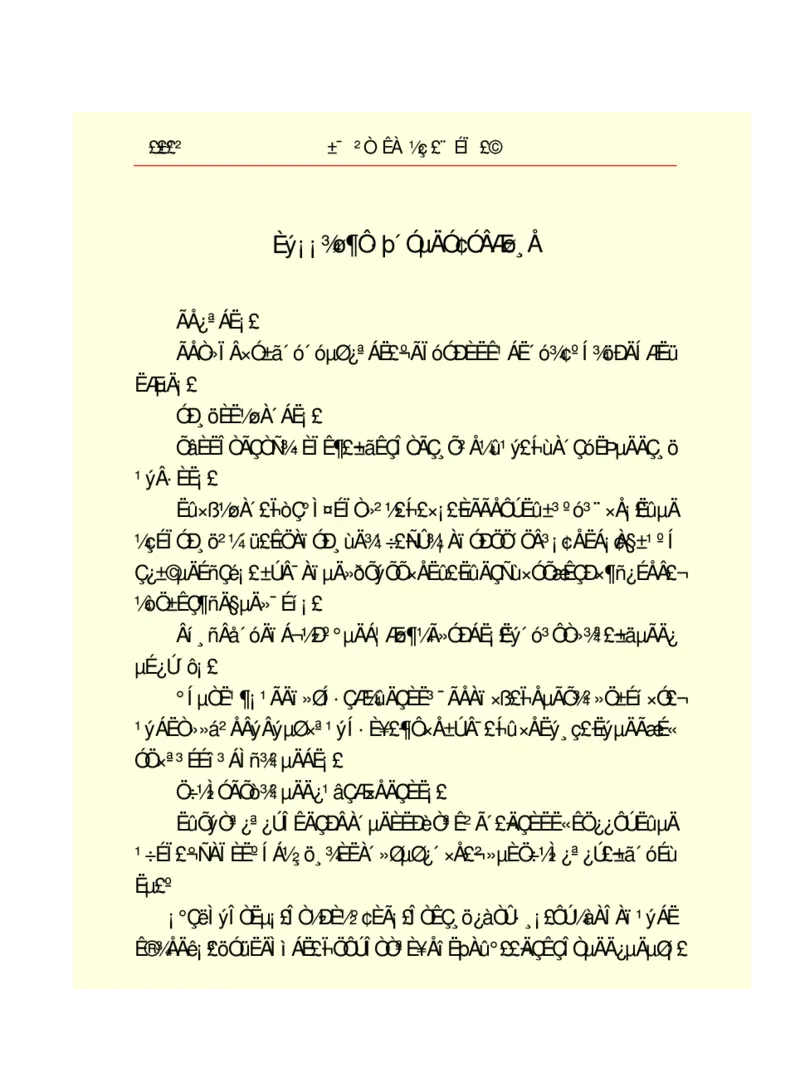 ££££²
±¯ ²Ò ÊÀ ½ç £¨ ÉÏ £©
Èý¡¡¾ø¶Ô·þ´ÓµÄÓ¢ÓÂÆø¸Å
ÃÅ¿ªÁË¡£
ÃÅÒ»ÏÂ×Ó±ã´ó´óµØ¿ªÁË£¬ºÃÏóÓÐÈËÊ¹ÁË´ó¾¢ºÍ¾öÐÄÍÆËü
ËÆµÄ¡£
ÓÐ¸öÈË½øÀ´ÁË¡£
ÕâÈËÎÒÃÇÒÑ¾­ÈÏÊ¶£¬±ãÊÇÎÒÃÇ¸Õ²Å¼û¹ý£¬ÍùÀ´ÇóËÞµÄÄÇ¸ö
¹ýÂ·ÈË¡£
Ëû×ß½øÀ´£¬ÍòÇ°Ì¤ÉÏÒ»²½£¬Í£×¡£¬ÈÃÃÅÔÚËû±³ºó³¨×Å¡£ËûµÄ
¼çÉÏÓÐ¸ö²¼´ü£¬ÊÖÀïÓÐ¸ùÄ¾¹÷£¬ÑÛ¾¦ÀïÓÐÖÖ´ÖÂ³¡¢·ÅËÁ¡¢À§±¹ºÍ
Ç¿±©µÄÉñÇé¡£±ÚÂ¯ÀïµÄ»ðÕýÕÕ×ÅËû£¬ËûÄÇÑù×ÓÕæÊÇÐ×¶ñ¿ÉÅÂ£¬
¼òÖ±ÊÇ¶ñÄ§µÄ»¯Éí¡£
Âí¸ñÂå´óÄïÁ¬½Ðº°µÄÁ¦Æø¶¼Ã»ÓÐÁË¡£Ëý´ó³ÔÒ»¾ª£¬±äµÃÄ¿
µÉ¿Ú´ô¡£
°ÍµÒË¹¶¡¹ÃÄï»ØÍ·ÇÆ¼ûÄÇÈË³¯ÃÅÀï×ß£¬ÏÅµÃÕ¾²»Ö±Éí×Ó£¬
¹ýÁËÒ»»á²ÅÂýÂýµØ×ª¹ýÍ·È¥£¬¶Ô×Å±ÚÂ¯£¬Íû×ÅËý¸ç£¬ËýµÄÃæÉ«
ÓÖ×ª³ÉÉî³ÁÌñ¾²µÄÁË¡£
Ö÷½ÌÓÃÕò¾²µÄÄ¿¹âÇÆ×ÅÄÇÈË¡£
ËûÕýÒª¿ª¿ÚÎÊÄÇÐÂÀ´µÄÈËÐèÒªÊ²Ã´£¬ÄÇÈËË«ÊÖ¿¿ÔÚËûµÄ
¹÷ÉÏ£¬°ÑÀÏÈËºÍÁ½¸ö¸¾ÈËÀ´»ØµØ¿´×Å£¬²»µÈÖ÷½Ì¿ª¿Ú£¬±ã´óÉù
Ëµ£º
¡°ÇëÌýÎÒËµ¡£ÎÒ½ÐÈ½°¢ÈÃ¡£ÎÒÊÇ¸ö¿àÒÛ·¸¡£ÔÚ¼àÀÎÀï¹ýÁË
Ê®¾ÅÄê¡£³öÓüËÄÌìÁË£¬ÏÖÔÚÎÒÒªÈ¥ÅîËþÀû°££¬ÄÇÊÇÎÒµÄÄ¿µÄµØ¡£